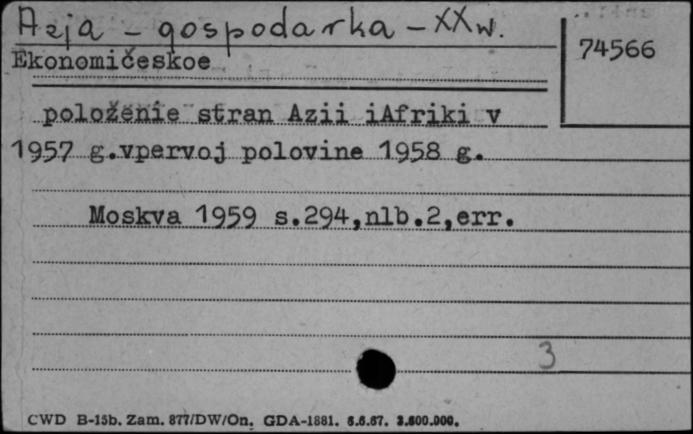 Azja - gospodarka - XX w.
74566
Ekonomičeskoe
položenie stran Azii iAfriki v
1957 g.vpervoj polovine 1958 g.
Moskva 1959 s.294,nlb.2,err.
3
CWD B-15b. Zam. 877/DW/On. GDA-1881. 6.6.67. 3.600.000.